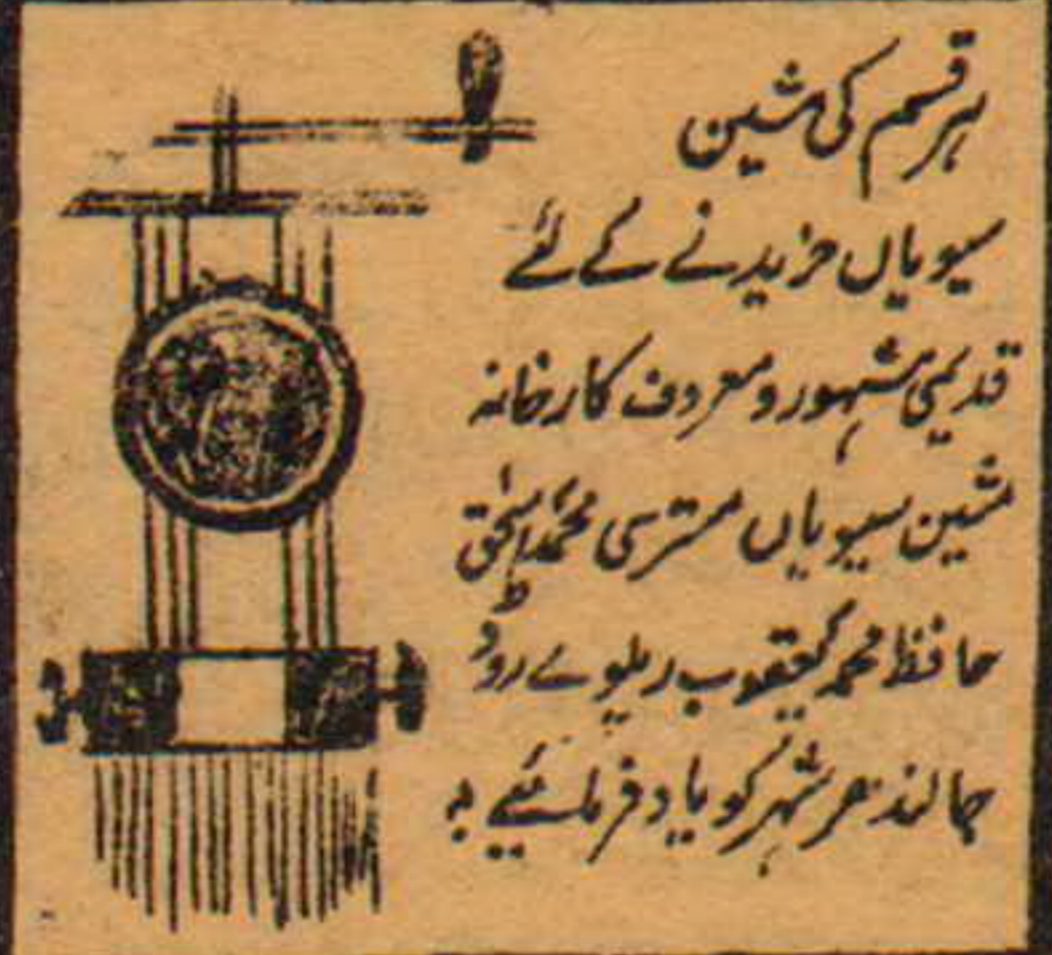 ہر قسم کی مشین
سیویاں خریدنے کے لئے
قدیمی مشہور و معروف کارخانہ
مشین سیویاں مستری محمد اسحٰق
حافظ محمد یعقوب ریلوے روڈ
جالندھر شہر کو یاد فرمائیے